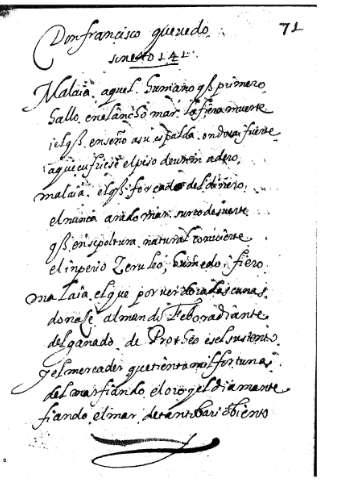 Don francisco quevedo
71
soneto 141
Malaia aquel humano q̃ primero
hallo en el ancho mar la fiera muerte
i el q̃ enseño a su espalda ondosa i fuerte
a que
malaia el q̃ forcado del dinero
el nunca arado mar surco de suerte
q̃ en sepoltura natural conuierte
el inperio Zeruleo, humedo, i fiero
malaia el que por ver doradas canas
do nace al mundo Febo radiante
del ganado de Protheo es el sustento
y el mercader que tienta mil fortunas
del mar fiando el oro y el diamante
fiando el mar de tanto bario biento